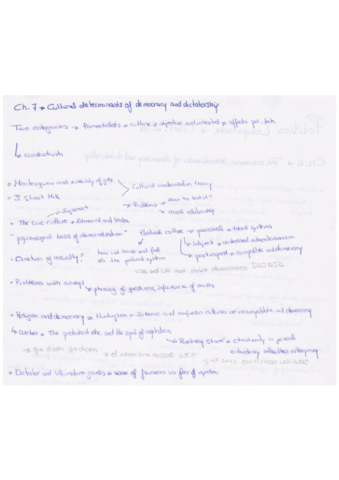 Ch. 7 → Cultural determinants of democracy and dictatorship
Two categories → Primordialists → culture is objective and inherited → affects pol. beh.
↳ constructivists
• Montesquieu and suitability of gvts
Cultural modernization theory
• J. Stuart Mill
→ Problems → how to test it?
→ causal relationship
3 segments
• The Civic culture → Almond and Verba
psychological basis of democratization?
Political culture → parochial → tribal systems
→ subject → authoritarianism
→ participant → compatible w/ democracy
• Direction of causality?
how indiv. think and feel
abt the political system
• Problems with surveys → phrasing of questions, inference of answers
• Religion and democracy → Huntington → Islamic and confucian cultures are incompatible w/ democracy
↳ Weber → The protestant ethic and the spirit of capitalism
→ Christianity in general
• Dictator and Ultimatum games → sense of fairness